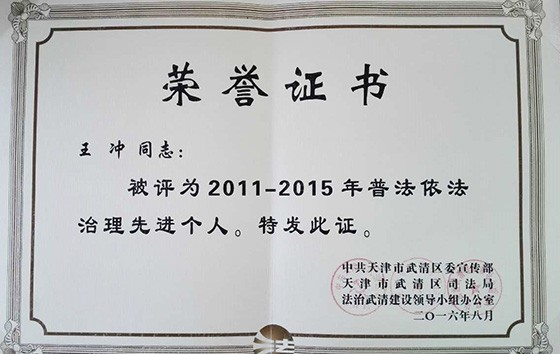 荣誉证书
王冲同志：
被评为2011-2015年普法依法
治理先进个人。特发此证。
中共天津市武清区委宣传部
天津市武清区司法局
法治武清建设领导小组办公室
二〇一六年八月